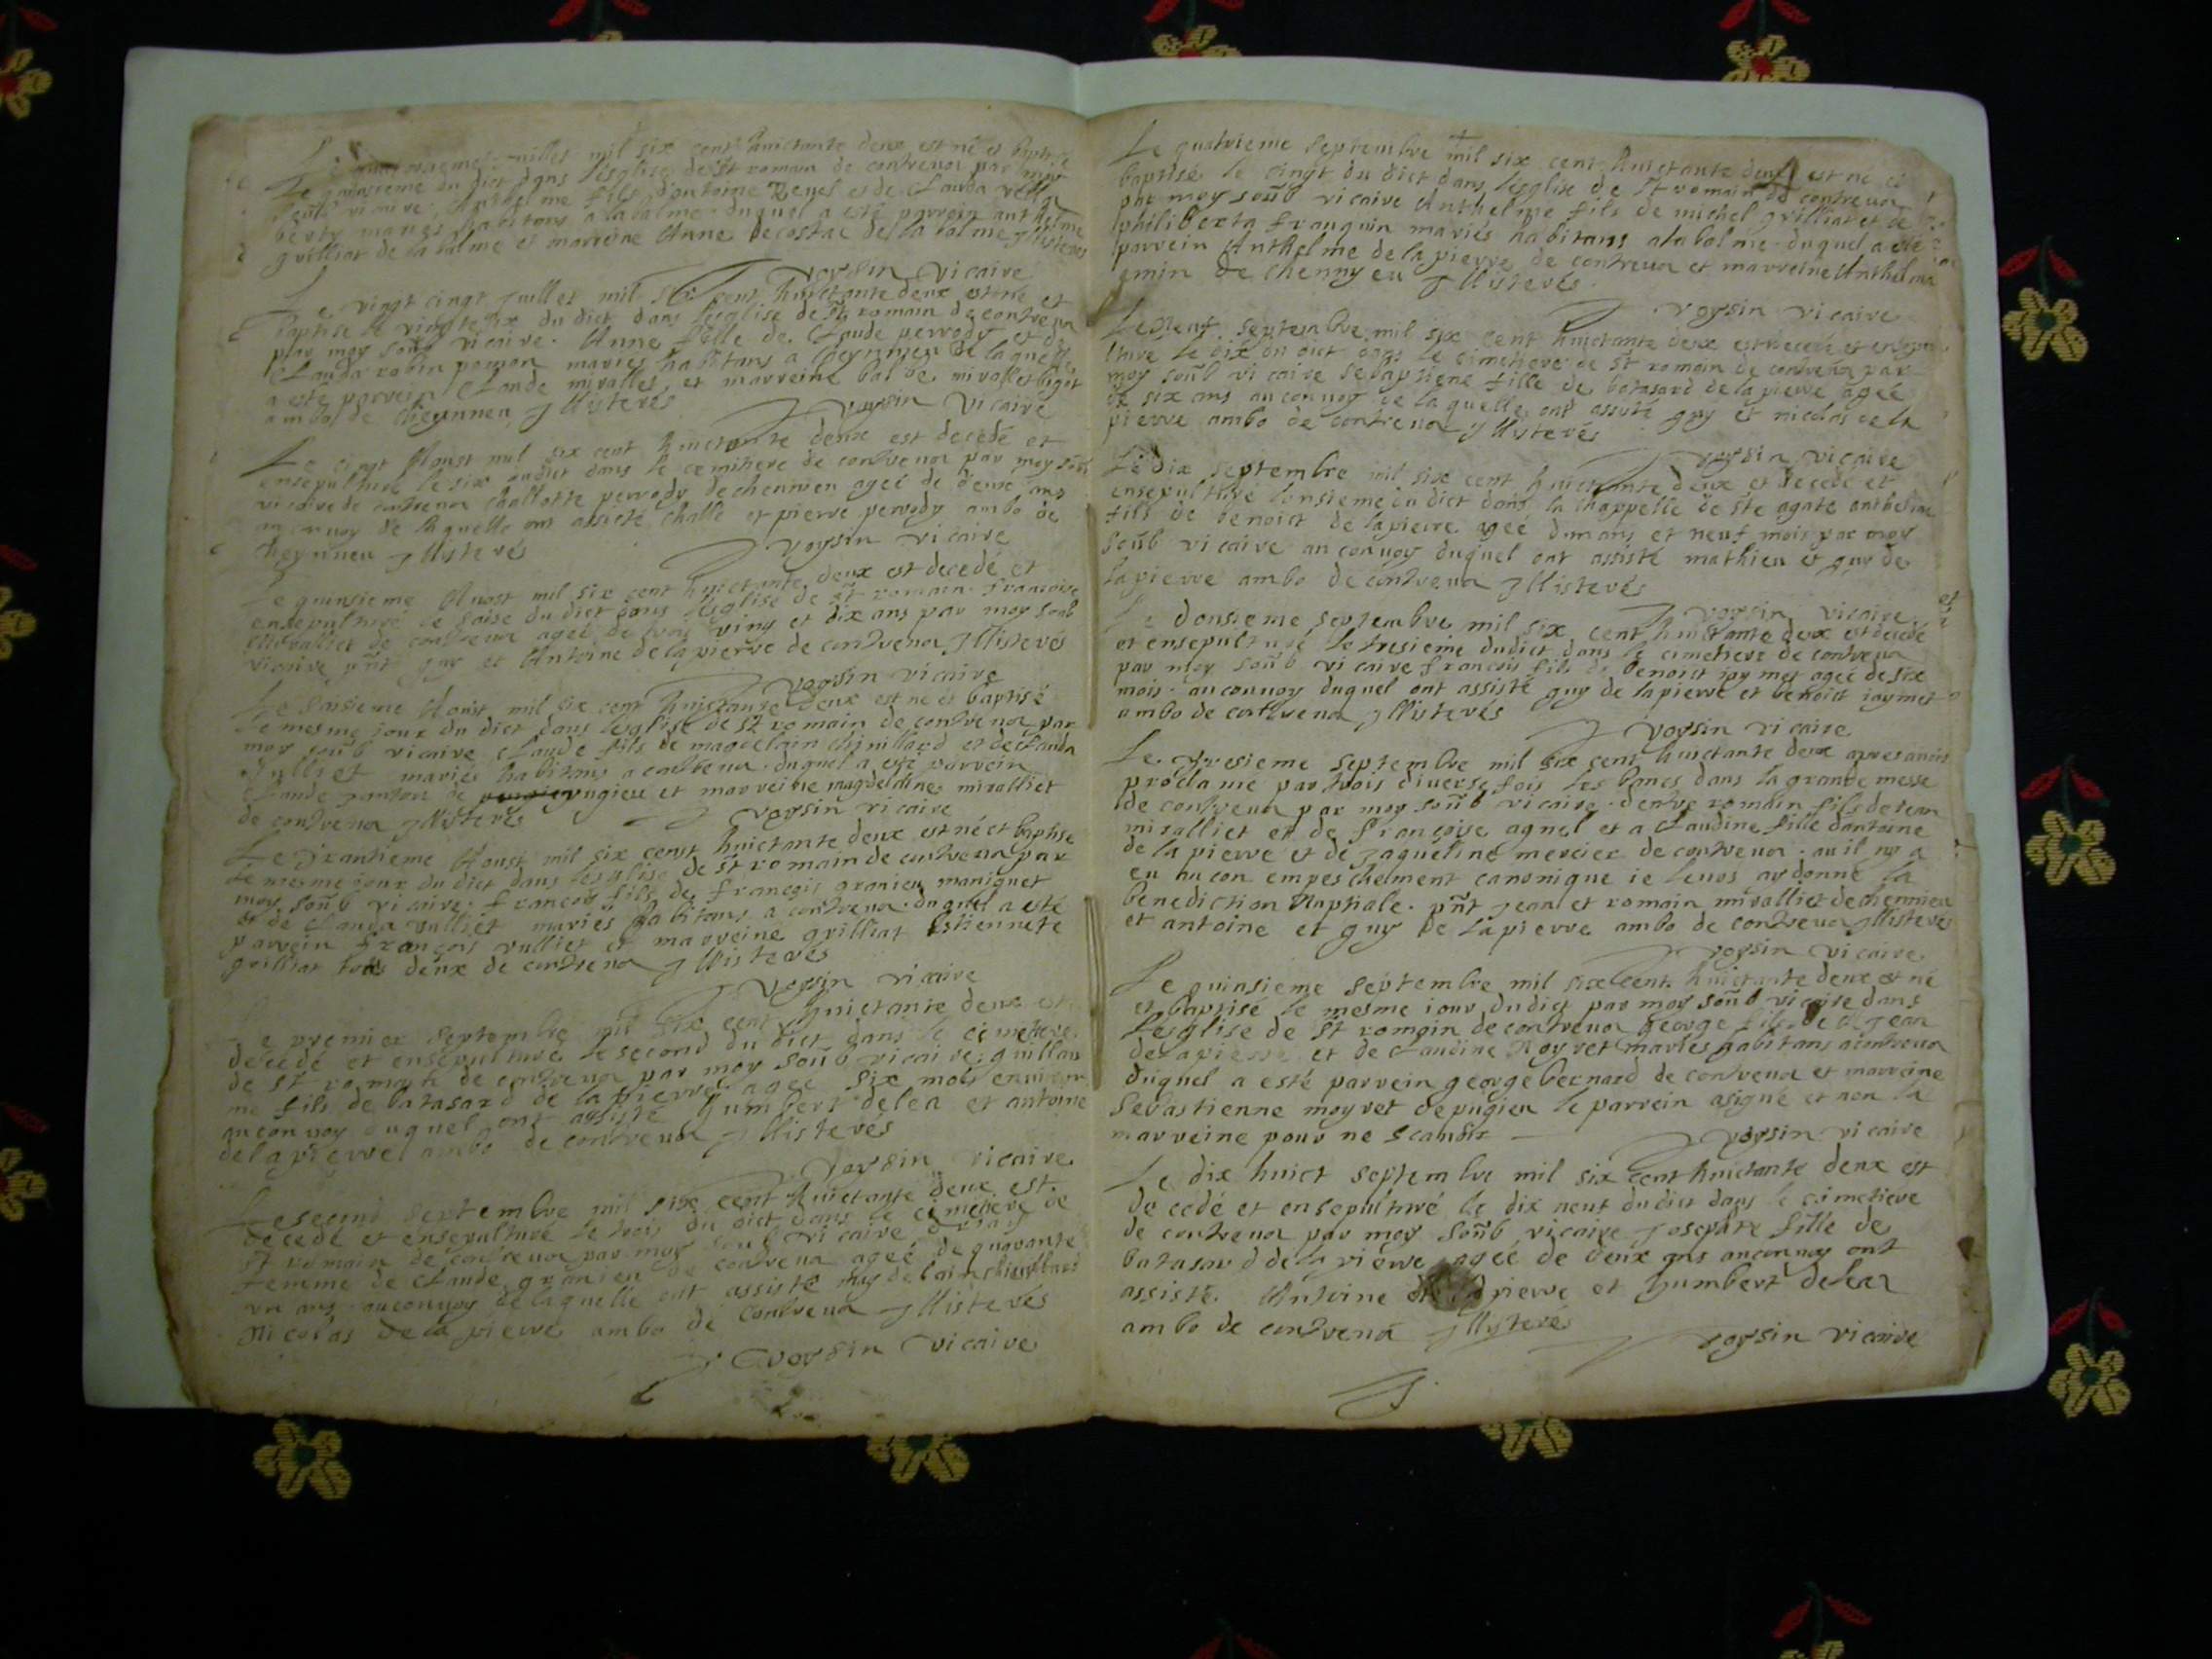 Le quatorsieme juillet mil six cent huictante deux est né et baptisé
le quinsieme du dict dans l'esglise de St romain de contrevoz par moy
soub vicaire Anthelme fils dantoine et de Clauda
mariés habitans a la balme duquel a esté parrein anthelme
grilliat de la balme et marreine Anne decostae de la balme Illisterés
voysin vicaire
Le vingt cinqt juillet mil six cent huictante deux est né et
baptisé le vingt six du dict dans lesglise de St romain de contrevoz
par moy soub vicaire Anne fille de Claude perrody et de
Clauda robin pomon mariés habitans a cheynnieu de laquelle
a esté parrein Claude miralles et marreine balbe mirallet bigot
ambo de cheynnieu Illisterés
voysin vicaire
Le cinqt Aoust mil six cent huictante deux est decedé et
ensepulturé le six dudict dans le cemitiere de contrevoz par moy soub
vicaire de contrevoz challotte perrody de chennieu ageé de deux ans
au convoy de laquelle ont assisté challe et pierre perrody ambo de
cheynnieu Illisterés
voysin vicaire
Le quinsieme Aoust mil six cent huictante deux est decedé et
ensepulturé le saise du dict dans lesglise de St romain francoise
miralliet de contrevoz ageé de trois ving et dix ans par moy soub
vicaire pnt guy et Antoine de la pierre de contrevoz Illisterés
voysin vicaire
Le saisieme Aoust mil six cent huictante deux est né et baptisé
le mesme jour du dict dans lesglise de St romain de contrevoz par
moy soub vicaire Claude fils de magdelain chinillard et de Clauda
julliet mariés habitans a contrevoz duquel a esté parrein
Claude janton de pugieu et marreine magdeldine miralliet
de contrevoz Illisterés
voysin vicaire
Le trantieme Aoust mil six cent huictante deux est né et baptisé
le mesme jour du dict dans lesglise de St romain de contrevoz par
moy soub vicaire francois fils de francois granieu maniguet
et de Clauda vulliet mariés habitans a contrevoz duquel a esté
parrein francois vulliet et marreine grilliat Estiennete
grilliat tous deux de contrevoz Illisterés
voysin vicaire
Le premier septembre mil six cent huictante deux est
decedé et ensepulturé le second du dict dans le cimetiere
de St romain de contrevoz par moy soub vicaire guillau
me fils de batasard de la pierre ageé six mois environ
au convoy duquel ont assisté humbert delea et antoine
de la pierre ambo de contrevoz Illisterés
voysin vicaire
Le second septembre mil six cent huictante deux est
decedé et ensepulturé le trois du dict dans le cimetiere de
St romain de contrevoz par moy soub vicaire
femme de Claude granieu de contrevoz ageé de quarante
un ans au convoy de laquelle ont assisté magdelain chinillard
Nicolas de la pierre ambo de contrevoz Illisterés
voysin vicaire
Le quatrieme septembre mil six cent huictante deux est né et
baptisé le cinqt du dict dans lesglise de St romain de contrevoz
par moy soub vicaire Anthelme fils de michel grilliat et de
philiberta franquin mariés habitans a la balme duquel a esté
parrein Anthelme de la pierre de contrevoz et marreine Anthelma
emin de chennyeu Illisterés
voysin vicaire
Le neuf septembre mil six cent huictante deux est decedé et ensepu
lturé le dix du dict dans le cimetiere de St romain de contrevoz par
moy soub vicaire sebaptiene fille de batasard de la pierre ageé
de six ans au convoy de laquelle ont assisté guy et nicolas de la
pierre ambo de contrevoz Illisterés
voysin vicaire
Le dix septembre mil six cent huictante deux est decedé et
ensepulturé lonsieme du dict dans la chappelle de ste agate anthelme
fils de benoict de lapierre ageé dun ans et neuf mois par moy
soub vicaire au convoy duquel ont assisté mathieu et guy de
lapierre ambo de contrevoz Illisterés
voysin vicaire
Le dousieme septembre mil six cent huictante deux est decedé
et ensepulturé le tresieme dudict dans le cimetiere de contrevoz
par moy soub vicaire francois fils de benoict jaymet ageé de six
mois au convoy duquel ont assisté guy de lapierre et benoict jaymet
ambo de contrevoz Illisterés
voysin vicaire
Le tresieme septembre mil six cent huictante deux apres avoir
proclamé par trois diverse fois les bancs dans la grande messe
de contrevoz par moy soub vicaire dentre romain fils de jean
miralliet et de francoise agnel et a claudine fille dantoine
de la pierre et de jaqueline mercier de contrevoz au il ny a
eu aucon empeschelment canonique je leuos ay donné la
benediction Naptiale pnt jean et romain miralliet de chennieu
et antoine et guy de lapierre ambo de contrevoz Illisterés
voysin vicaire
Le quinsieme septembre mil six cent huictante deux est né
et baptisé le mesme jour dudict par moy soub vicaire dans
lesglise de St romain de contrevoz george fils de jean
de lapierre et de claudine moyret mariés habitans a contrevoz
duquel a esté parrein george bernard de contrevoz et marreine
sebastienne moyret de pugieu le parrein a signé et non la
marreine pour ne scavoir
voysin vicaire
Le dix huict septembre mil six cent huictante deux est
decedé et ensepulturé le dix neuf dudict dans le cimetiere
de contrevoz par moy soub vicaire josephte fille de
batasard de la pierre ageé de deux ans au convoy ont
assisté Antoine de la pierre et humbert delea
ambo de contrevoz Illysteré
voysin vicaire